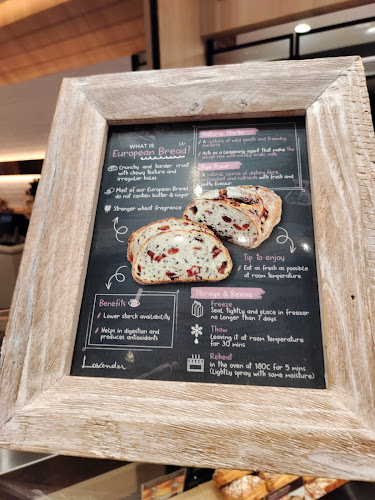 WHAT IS
European Bread?
Crunchy and harder crust
with chewy texture and
irregular holes
Most of our European Bread
do not contain butter & sugar
Stronger wheat fragrance
Natural Starter
A culture of wild yeasts and friendly
bacteria
Acts as a leavening agent that make the
dough rise
Rye Flour
A natural source of dietary fibre,
and nutrients with fresh and
nutty flavour
Tip to enjoy
Eat as fresh as possible
at room temperature
Benefits
Lower starch availability
Helps in digestion and
produces antioxidants
Lavender
Storage & Revive
Freeze
Seal tightly and place in freezer
no longer than 7 days
Thaw
Leaving it at room temperature
for 30 mins
Reheat
in the oven at 180C for 5 mins
(lightly spray with some moisture)